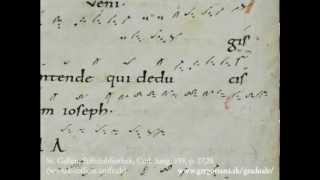 veni.
gis
ntende qui dedu cis
m ioseph.
St. Gallen, Stiftsbibliothek, Cod. Sang. 339, p. 27,28
(www.e-codices.unifr.ch)
www.gregoriana.sk/graduale/